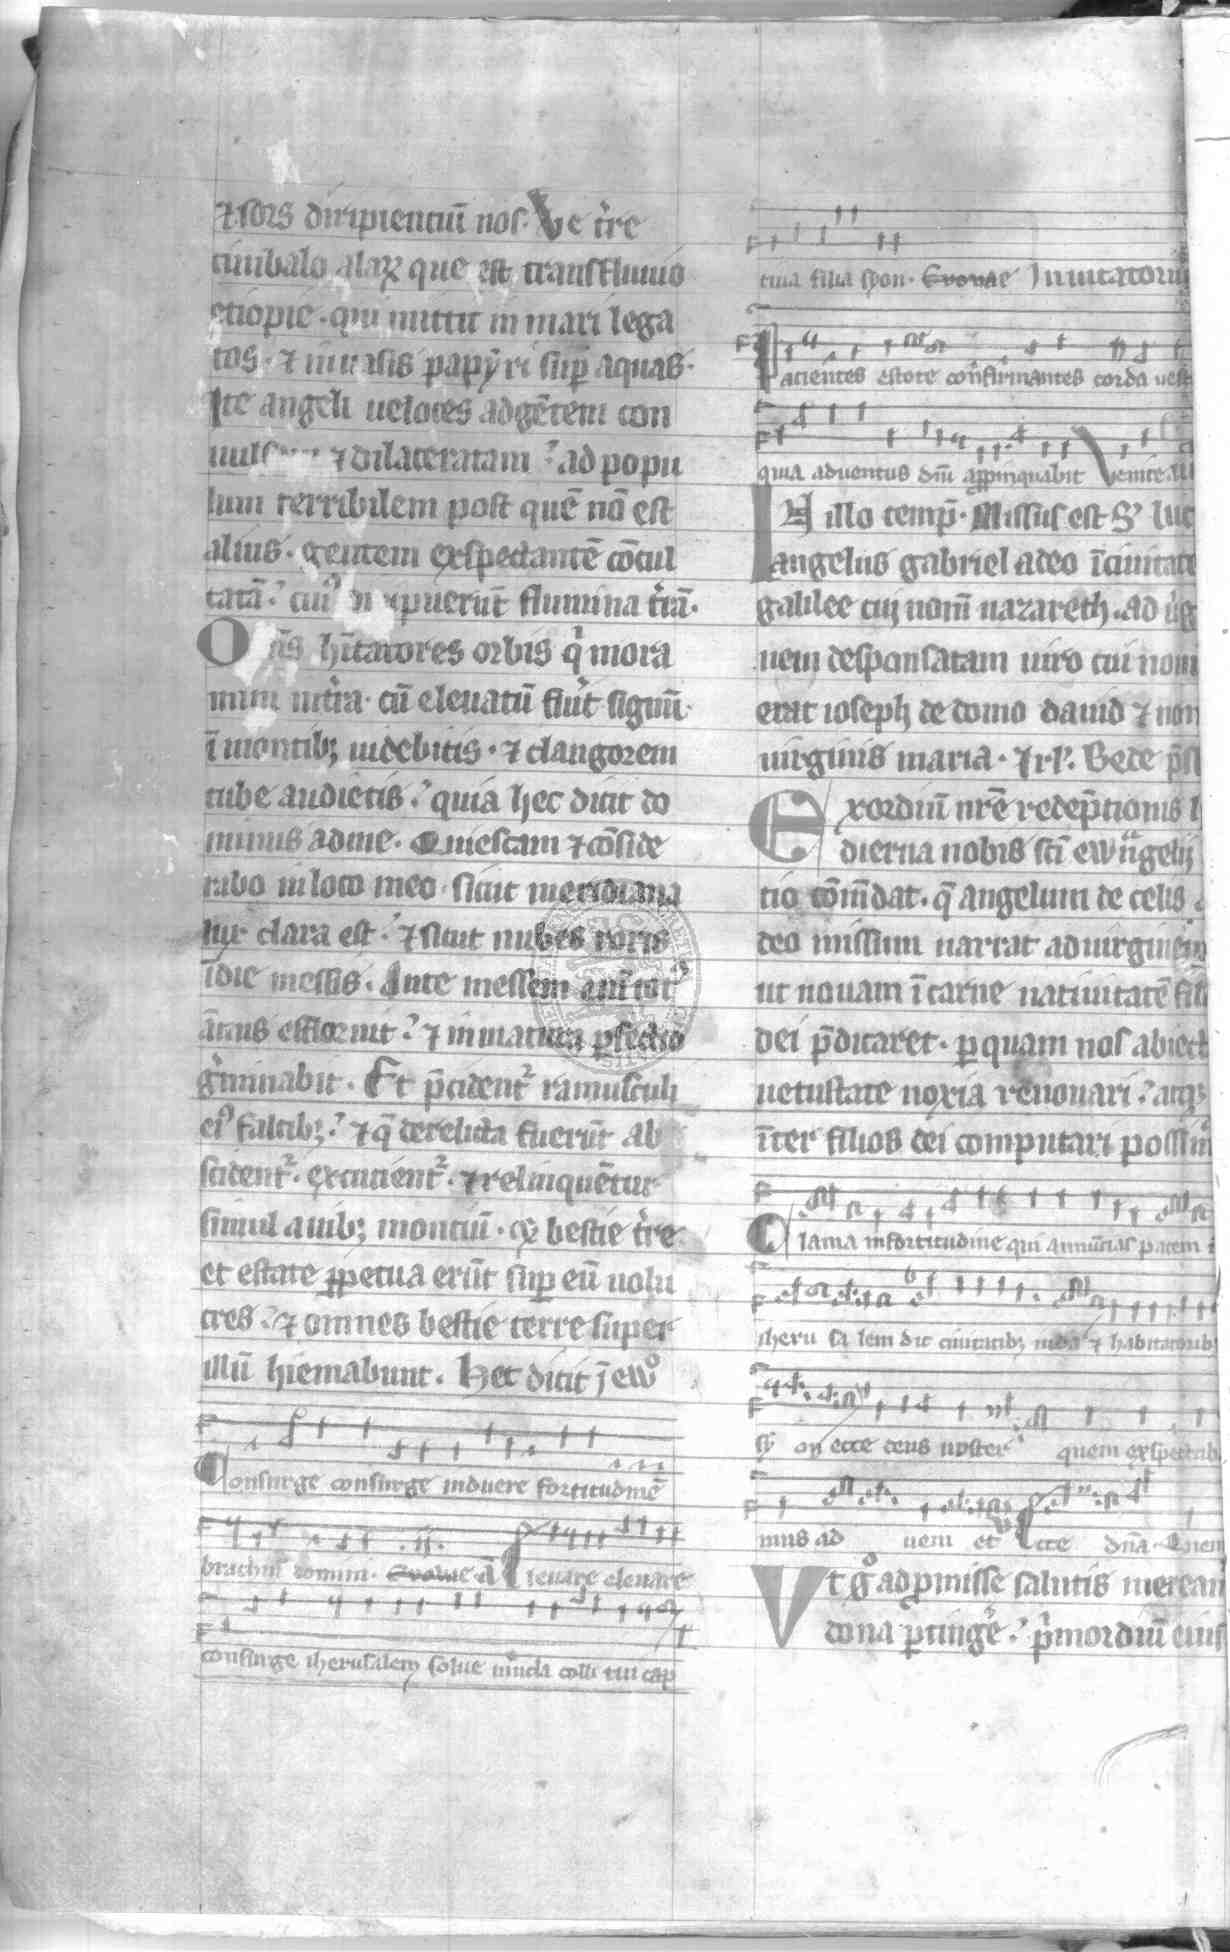 ⁊ sors diripientiū nos. Ve tr̄e
cimbalo alaꝝ que est trans flumio
etiopie. qui mittit in mari lega
tos. ⁊ in uasis papẏri sup̄ aquas.
Ite angeli ueloces ad gētem con
⁊ dilaceratam ? ad popu
lum terribilem post quē nō est
alius. gentem exspectantē cōcul
tatā ? cuiꝰ puerūt flumina tr̄ā.
O h̄itatores orbis q̄ mora
mini in tr̄a. cū eleuatū fiūt signū
ī montibꝫ uidebitis. ⁊ clangorem
tube audietis ? quia hec dicit do
minus ad me. Quiescam ⁊ cōside
rabo in loco meo. sicut meridiana
lux clara est ? ⁊ sicut nubes roris
ī die messis. Ante messem enī totꝰ
ef floruit ? ⁊ in matura ꝑfectio
gͥminabit. Et p̄cidentᷣ ramusculi
eiꝰ falcibꝫ ? ⁊ q̄ derelicta fuerūt ab
scidentᷣ. excucientᷣ. ⁊ relinquētur
simul auibꝫ montiū. ⁊ bestie tr̄e
et estate ꝑpetua erūt sup̄ eū uolu
cres ? ⁊ omnes bestie terre super
illū hiemabunt. Hec dicit j ewͦ
Consurge consurge induere fortitudinē
brachiū domini. Euouae a̅ Eleuare eleuare
consurge iherusalem solue uīcla colli tui cap
tiua filia syon. Euouae Inuitatoriū
Pacientes estote cōfirmantes corda uest
quia aduentus dn̄i apꝓpinquabit Venite
IN illo temp̄. Missus est S. luc
angelus gabriel a deo ī ciuitate
galilee cui nom̄ nazareth. ad ūg
nem desponsatam uiro cui nom
erat ioseph de domo dauid ⁊ nom
uirginis maria. ⁊ rl. Bede p̄sb
Exordiū nr̄e redēptionis h
dierna nobis sc̄i ewūgelij
tio cōm̄dat. q̄ angelum de celis a
deo missum narrat ad uirginem
ut nouam ī carne natiuitatē fili
dei p̄dicaret. ꝑ quam nos abiect
uetustate noxia renouari ? atqꝫ
īter filios dei computari possim
Clama in fortitudine qui annūcias pacem ī
iheru sa lem dic ciuitatibꝫ iuda ⁊ habitatoribꝫ
sy on ecce deus noster quem exspectaba
mus ad uem et Ecce dn̄a. Quem
Vt gͦ ad ꝓmisse salutis merean
dona ꝑtingͤe ? p̄mordiū eius